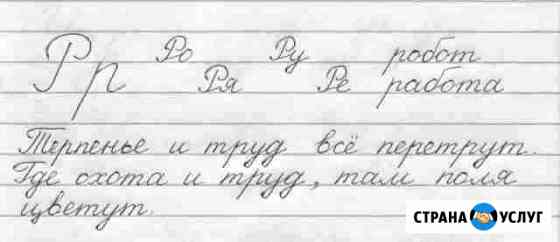 Рр Ро Ру робот
Ря Ре работа
Терпенье и труд всё перетрут.
Где охота и труд, там поля
цветут.
СТРАНА УСЛУГ